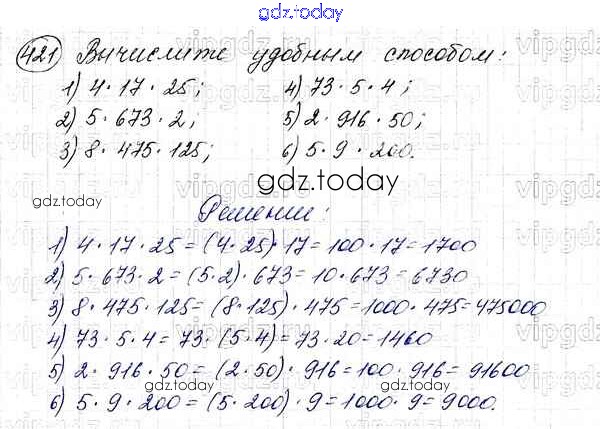 gdz.today
421 Вычислите удобным способом:
1) 4·17·25; 4) 73·5·4;
2) 5·673·2; 5) 2·916·50;
3) 8·475·125; 6) 5·9·200.
gdz.today
gdz.today
Решение:
1) 4·17·25=(4·25)·17=100·17=1700
2) 5·673·2=(5·2)·673=10·673=6730
3) 8·475·125=(8·125)·475=1000·475=475000
4) 73·5·4=73·(5·4)=73·20=1460
5) 2·916·50=(2·50)·916=100·916=91600
gdz.today gdz.today
6) 5·9·200=(5·200)·9=1000·9=9000.